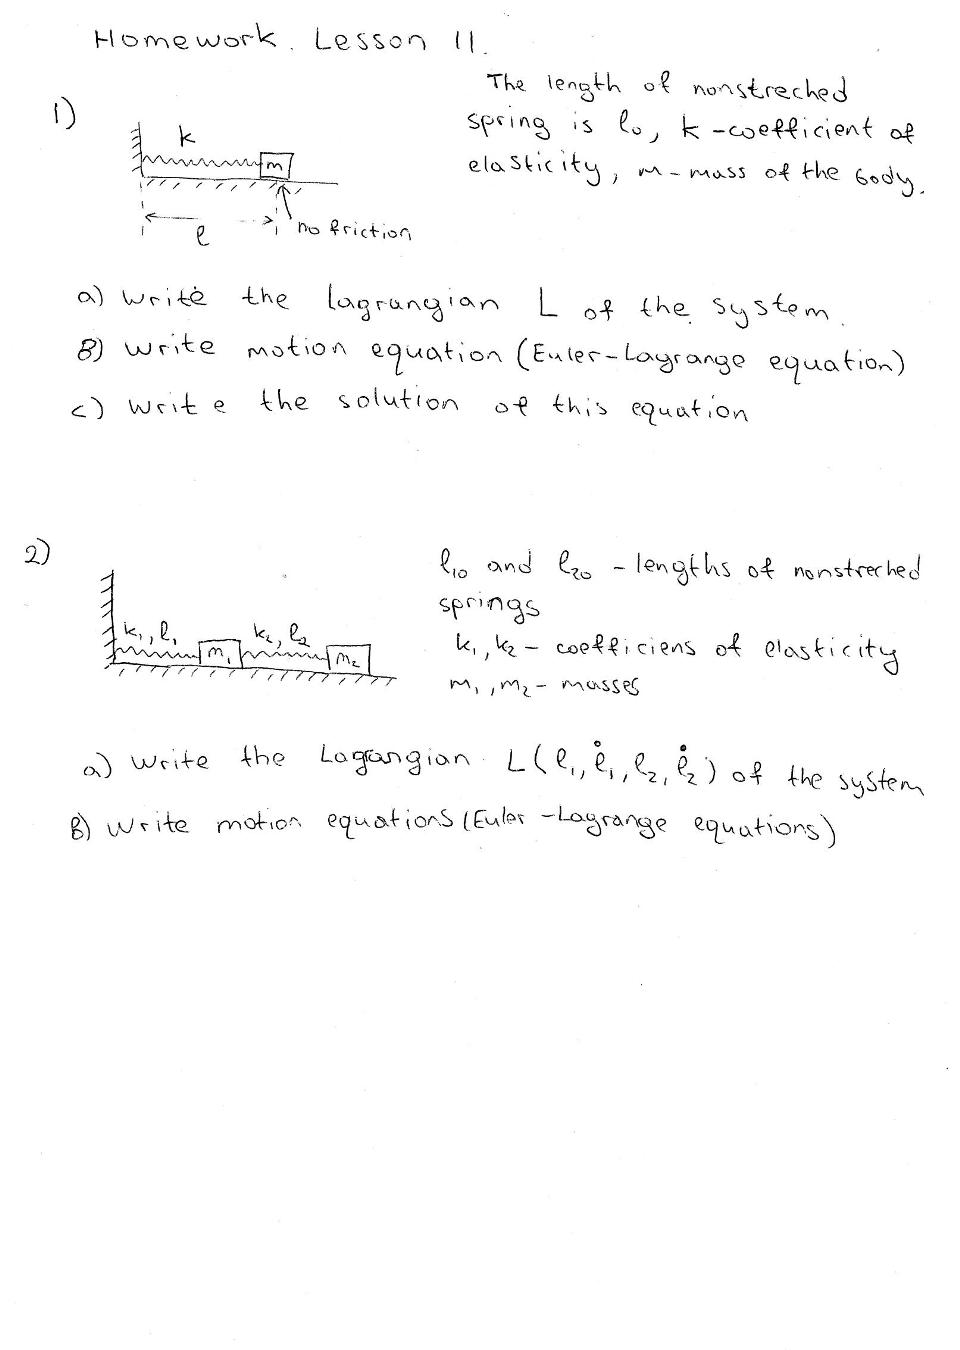 Homework. Lesson 11.
1)
The length of nonstreched
spring is l₀, k - coefficient of
elasticity, m - mass of the body.
k
m
l
no friction
a) Write the Lagrangian L of the system.
B) Write motion equation (Euler-Lagrange equation)
c) Write the solution of this equation
2)
l₁₀ and l₂₀ - lengths of nonstreched
springs
k₁, k₂ - coefficiens of elasticity
m₁, m₂ - masses
k₁, l₁ k₂, l₂
m₁ m₂
a) Write the Lagrangian L(l₁, l̇₁, l₂, l̇₂) of the system
B) Write motion equations (Euler-Lagrange equations)